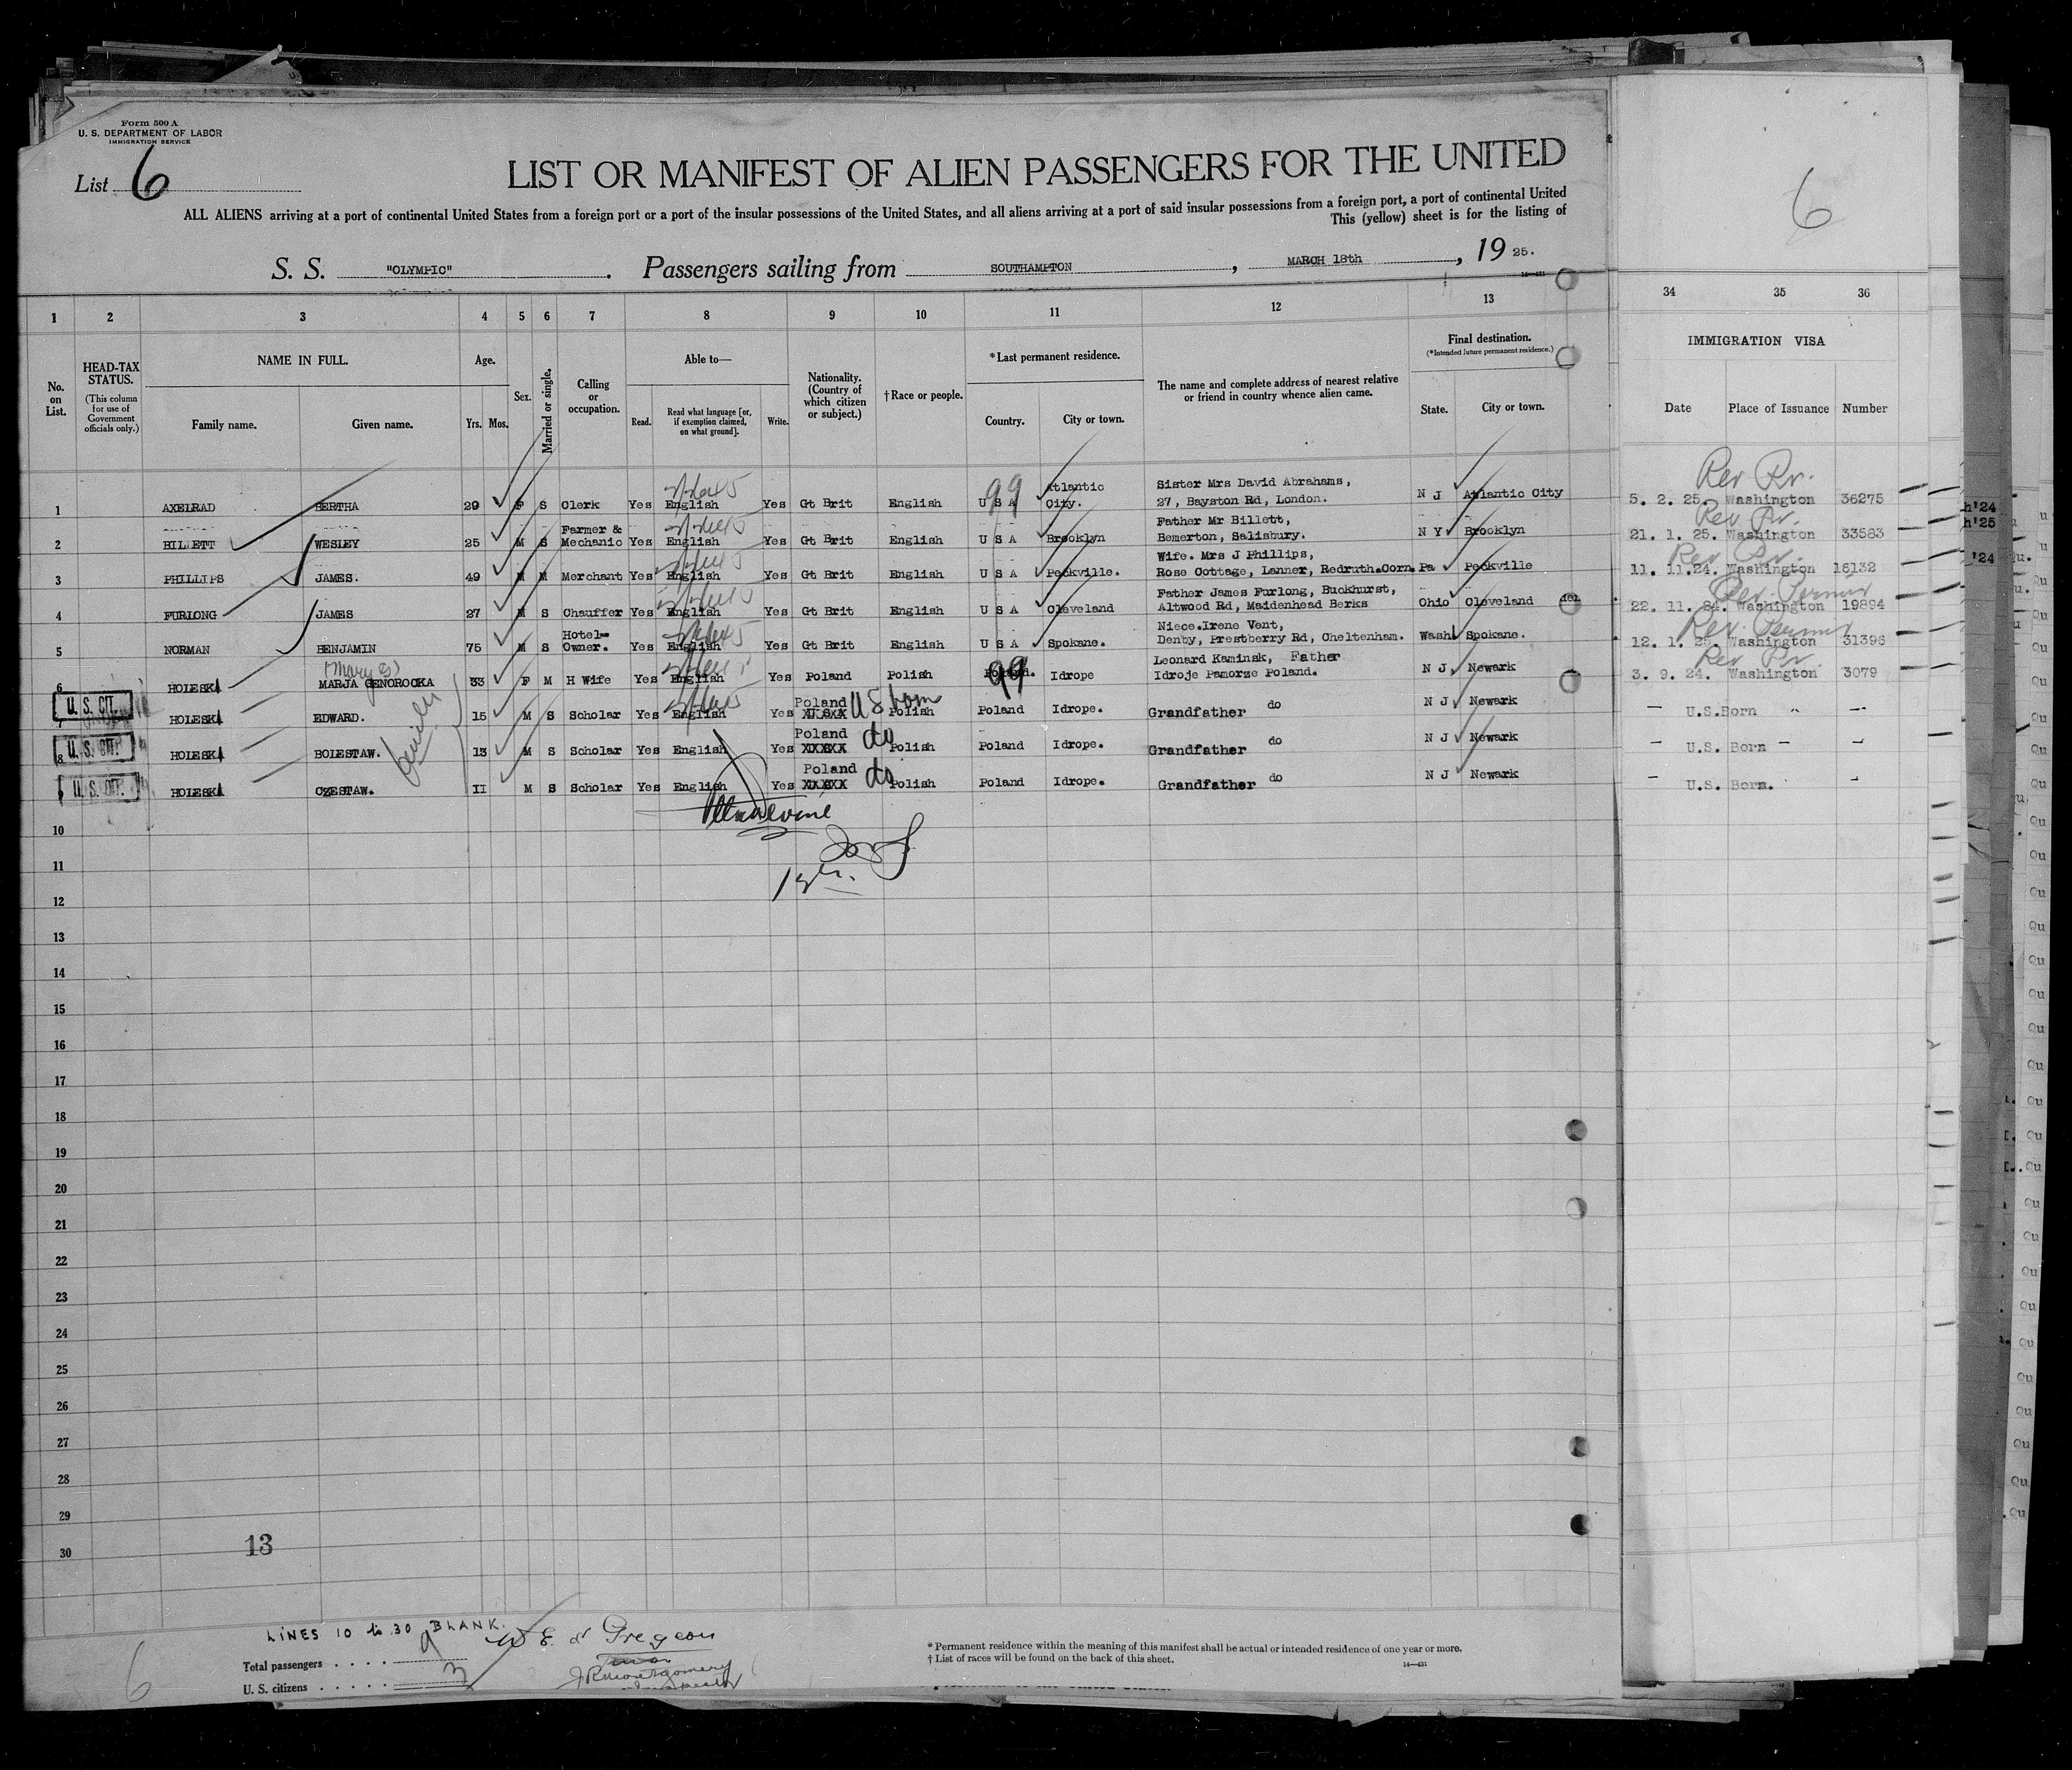 Form 500 A
U. S. DEPARTMENT OF LABOR
IMMIGRATION SERVICE
List 6
LIST OR MANIFEST OF ALIEN PASSENGERS FOR THE UNITED
6
ALL ALIENS arriving at a port of continental United States from a foreign port or a port of the insular possessions of the United States, and all aliens arriving at a port of said insular possessions from a foreign port, a port of continental United
This (yellow) sheet is for the listing of
S. S. "OLYMPIC" . Passengers sailing from SOUTHAMPTON , MARCH 18th , 19 25.
14—431
1 2 3 4 5 6 7 8 9 10 11 12 13 34 35 36
No. on List.
HEAD-TAX STATUS. (This column for use of Government officials only.)
NAME IN FULL.
Family name. Given name.
Age.
Yrs. Mos.
Sex.
Married or single.
Calling or occupation.
Able to—
Read. Read what language [or, if exemption claimed, on what ground]. Write.
Nationality. (Country of which citizen or subject.)
†Race or people.
*Last permanent residence.
Country. City or town.
The name and complete address of nearest relative or friend in country whence alien came.
Final destination.
(*Intended future permanent residence.)
State. City or town.
IMMIGRATION VISA
Date Place of Issuance Number
Rev Pr.
Atlantic Sister Mrs David Abrahams,
1 AXELRAD BERTHA 29 F S Clerk Yes English Yes Gt Brit English U S A 99 City. 27, Bayston Rd, London. N J Atlantic City 5. 2. 25. Washington 36275
Rev Pr.
Farmer & Father Mr Billett,
2 BILLETT WESLEY 25 M S Mechanic Yes English Yes Gt Brit English U S A Brooklyn Bemerton, Salisbury. N Y Brooklyn 21. 1. 25. Washington 33583
Rev Pr.
Wife. Mrs J Phillips,
3 PHILLIPS JAMES. 49 M M Merchant Yes English Yes Gt Brit English U S A Peckville. Rose Cottage, Lanner, Redruth.Corn. Pa Peckville 11. 11.24. Washington 16132
Rev. Permit
Father James Furlong, Buckhurst,
4 FURLONG JAMES 27 M S Chauffer Yes English Yes Gt Brit English U S A Cleveland Altwood Rd, Maidenhead Berks Ohio Cleveland 22. 11. 24. Washington 19894
Rev. Permit
Hotel- Niece.Irene Vent,
5 NORMAN BENJAMIN 75 M S Owner. Yes English Yes Gt Brit English U S A Spokane. Denby, Prestberry Rd, Cheltenham. Wash Spokane. 12. 1. 25. Washington 31396
Rev Pr.
Mary Leonard Kaminsk, Father
6 HOLESKA MARJA GENOROCKA 33 F M H Wife Yes English Yes Poland Polish Poland. 99 Idrope Idroje Pamorze Poland. N J Newark 3. 9. 24. Washington 3079
U. S. CIT. Poland U S born
7 HOLESKA EDWARD. 15 M S Scholar Yes English Yes Polish Poland Idrope. Grandfather do N J Newark — U.S.Born " —
U. S. CIT. Poland do
8 HOLESKA BOLESTAW. 13 M S Scholar Yes English Yes Polish Poland Idrope. Grandfather do N J Newark — U.S. Born — —
U. S. CIT. Poland do
HOLESKA CZESTAW. II M S Scholar Yes English Yes Polish Poland Idrope. Grandfather do N J Newark — U.S. Born. —
10
11
12
13
14
15
16
17
18
19
20
21
22
23
24
25
26
27
28
29
30
13
LINES 10 to 30 BLANK.
Total passengers . . . . . 9
U. S. citizens . . . . . 3
6
JRMontgomery
* Permanent residence within the meaning of this manifest shall be actual or intended residence of one year or more.
† List of races will be found on the back of this sheet.
14—431